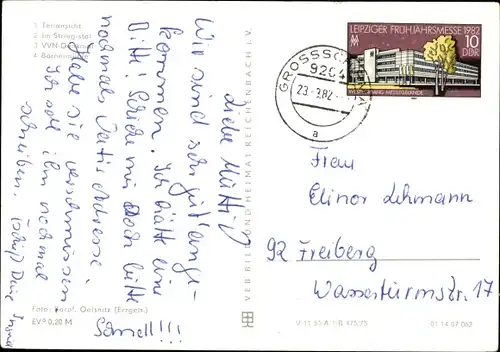 1 Teilansicht
2 Im Striegistal
3 VVN-Denkmal
4 Bärenmühle
Liebe Mutti!
Wir sind sehr gut ange-
kommen. Ich hätte eine
Bitte! Schicke mir doch bitte
nochmals Adresse
Habe sie verschmissen
Ich soll ihm nochmal
schreiben. Deine
Schnell!!!
Foto: Darr. Oelsnitz (Erzgeb.)
EVP 0,20 M
VEB BILD UND HEIMAT REICHENBACH I. V.
V 11 50 A 1/B 475/75
01 14 07 062
LEIPZIGER FRÜHJAHRSMESSE 1982
10
DDR
MESSEGELÄNDE
GROSSSCHIRMA
920
23.-3.82
a
Frau
Elinor Lehmann
92 Freiberg
Wasserturmstr. 17